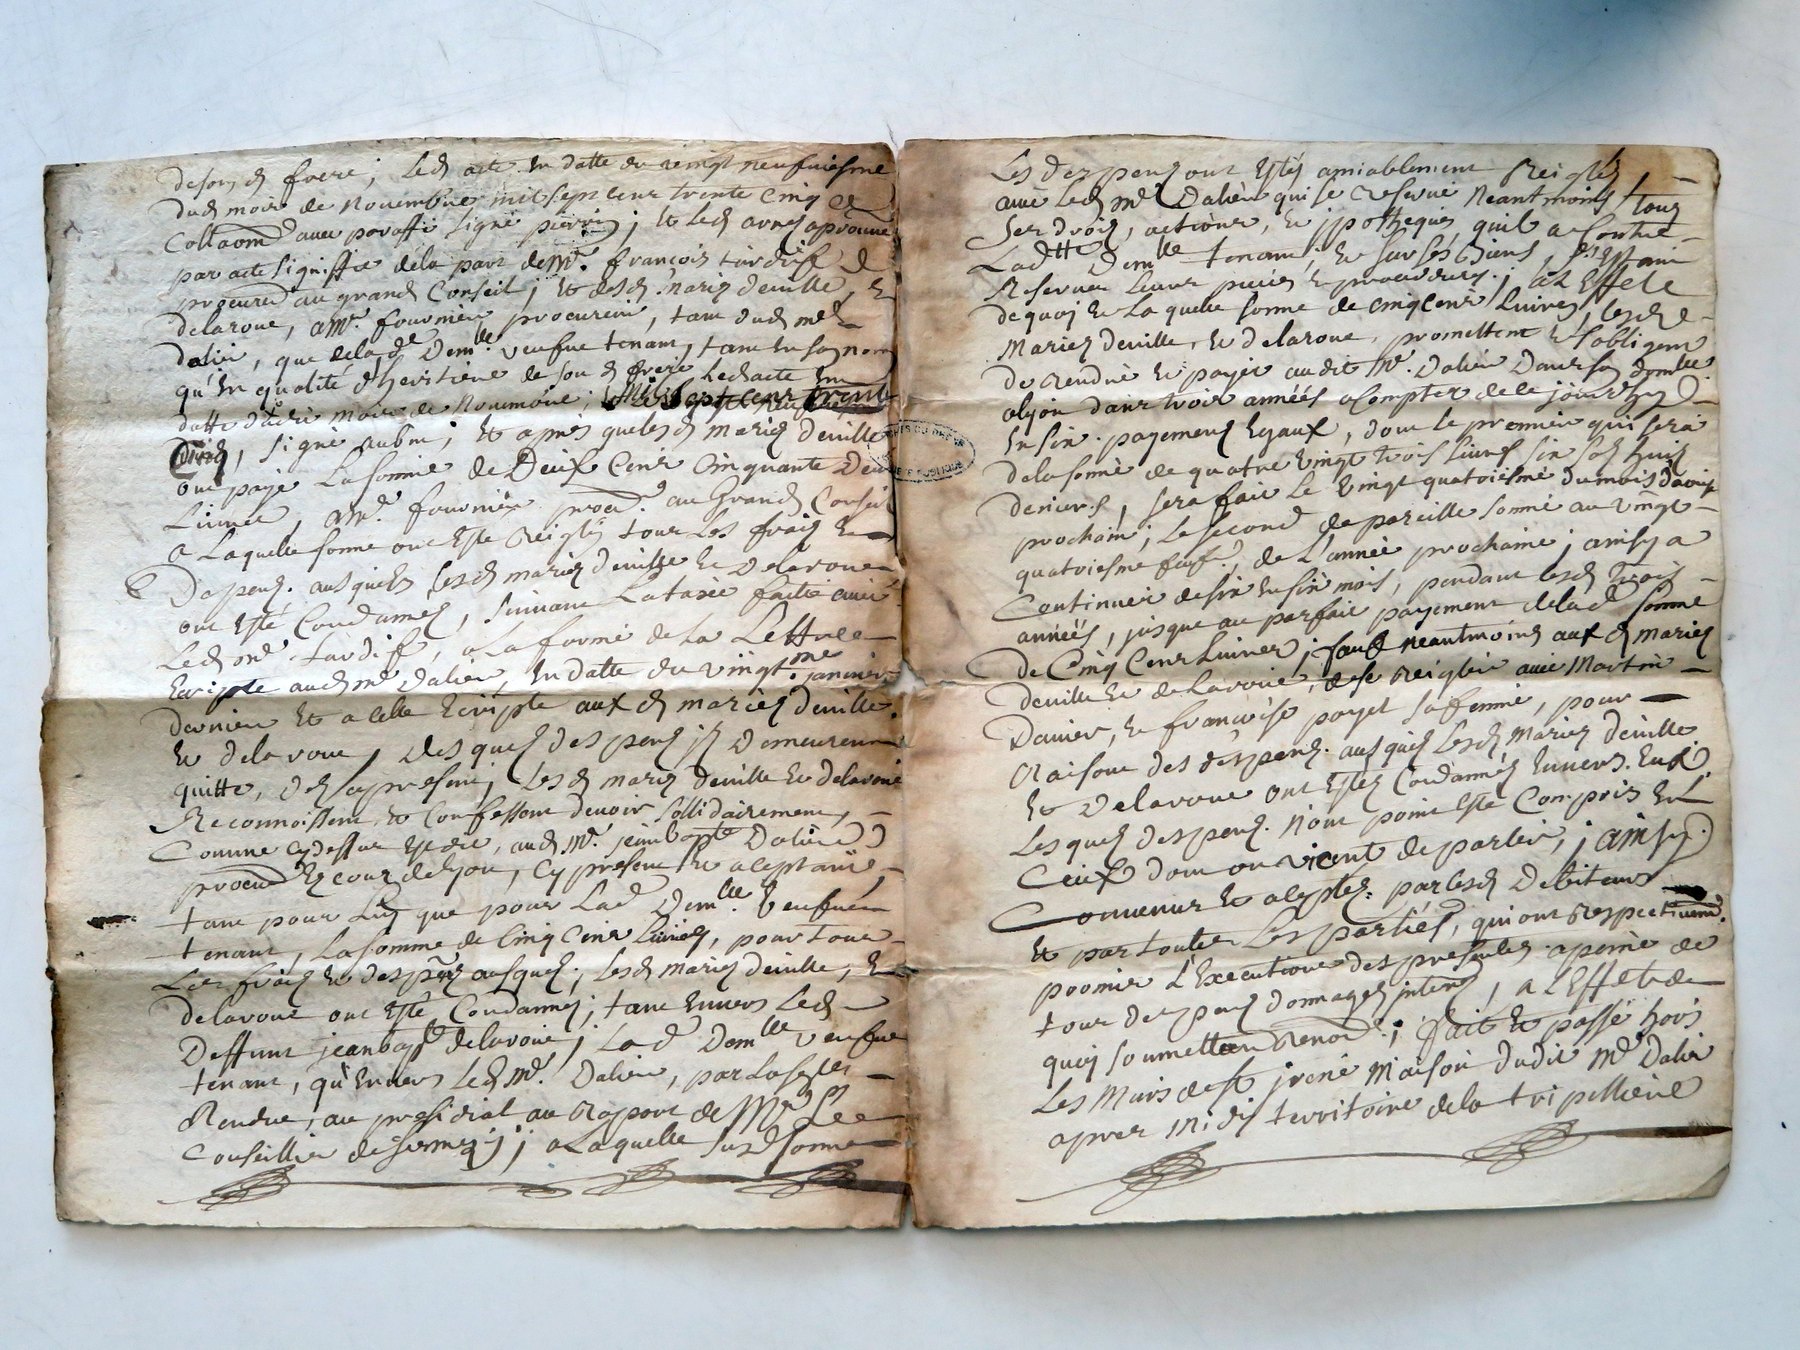 deson d frere; Led acte en datte du vingt neufuiesme
dud mois de Nouembre mil sept cens trente cinq
Collaond auec paraffe signé; et led
par acte signiffié de la part de Mr. françois tardif
procureur au grand Conseil; et desd mariez deuille, et
delaroue, a Mr. fournier procureur, tant dud mr
dalier, que de lad Demlle. veufue tenant, tant en son nom
qu'en qualité d'heritiere de son d frere Led acte en
datte dudit mois de Nouembre; Mil sept cens trente
Cinq, signé aubin; et apres que lesd mariez deuille
ont payé La somme de Deux Cens Cinquante Deux
Liures, a Mr. fournier procr. au Grand Conseil
a Laquelle somme ont esté reiglés tous Les frais et
Depens. ausquels lesd mariez deuille et Delaroue
ont esté Condamnés, suiuant La taxe faite auec
Led mr tardif, a La forme de La Lettre
Escripte aud mr Dalier, en datte du vingtme. januier
dernier et a celle Escripte aux d mariez deuille.
et delaroue, Desquels despens ils Demeurent
quitte, des apresent; Les d mariez deuille et delaroue
Reconnoissent et Confessent deuoir sollidairement,
Comme cy dessus est dit, aud Mr. jean bapte Dalier
procur es cours de Lyon, Cy present et aceptant
tant pour Luy que pour Lad Demlle. Veufue
tenant, La somme de Cinq Cens Liures, pour tous
Les frais et despens ausquels; lesd mariez deuille, et
delaroue ont esté Condamnés; tant enuers Led
Deffunt jean bapt delaroue; Lad Demlle veufue
tenant, qu'enuers Led Mr. Dalier, par La sentence
Rendue, au presidial au raport de Mr Le
Conseillier de; a Laquelle susd somme
Les despens ont estés amiablement Reiglés
auec led Mr Dalier qui se reserue Neantmoins tous
ses droits, actions, et ipotheques, quil a Contre
Ladtte Demlle tenant, et sur ses biens,
Reseruer Leurs pieces et procedures; a L'Effet
de quoy et La quelle somme de cinq cens Liures, lesd
Mariez deuille, et delaroue, promettent et s'obligent
de Rendre et payer audit Mr. Dalier Dans son domlle.
a lyon dans trois années a Compter de ce jourdhuy
En six payements Egaux, dont le premier qui sera
de la somme de quatre Vingt trois Liures six sols huit
deniers, sera fait Le Vingt quatriesme du mois d'aoust
prochain, Le second de pareille somme au vingt
quatriesme feuf., de L'année prochaine; ainsy a
Continuer de six en six mois, pendant lesd trois
années, jusque au parfait payement de lad somme
de Cinq Cens Liures; sauf neantmoins aux d mariez
deuille et de Laroue, de se reigler auec Martin
Danier, et françoise payet sa femme, pour
Raison des despens. ausquels Lesd Mariez deuille
et Delaroue ont Estés Condamnés Enuers. Eux.
Les quels despens. N'ont point esté Compris En
Ceux dont on vient de parler,; ainsy
Conuenus et aceptés. par lesd Debiteurs
et par toutes Les parties, qui ont respectiuemt.
promis L'Execution des presentes a peine de
tous despens dommages interets, a L'Effet de
quoy soumettent Renond.; fait et passé hors
Les Murs de St jrené Maison dudit Mr Dalier
apres Midy territoire de la tripelliere